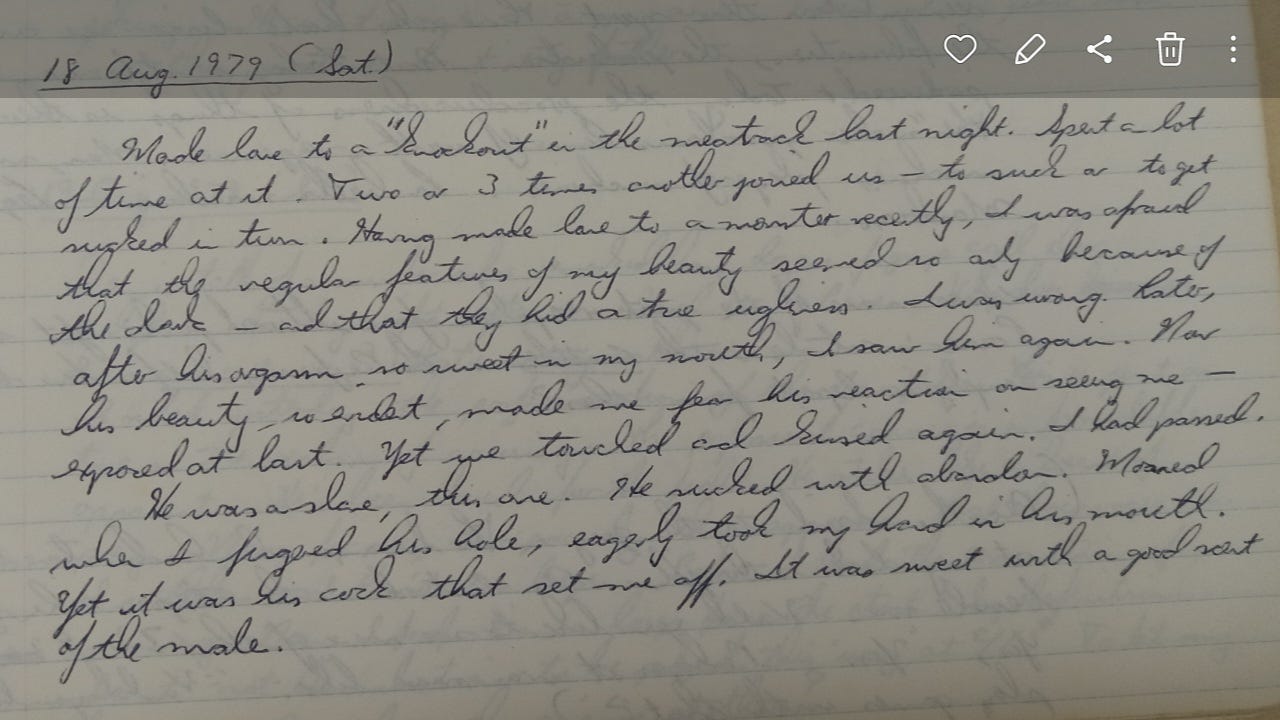 18 Aug. 1979 (Sat.)
Made love to a "knockout" in the meatrack last night. Spent a lot
of time at it. Two or 3 times another joined us – to suck or to get
sucked in turn. Having made love to a monster recently, I was afraid
that the regular features of my beauty seemed so only because of
the dark – and that they hid a true ugliness. I was wrong. Later,
after his orgasm, so sweet in my mouth, I saw him again. Now
his beauty, so evident, made me fear his reaction on seeing me –
exposed at last. Yet we touched and kissed again. I had passed.
He was a slave, this one. He sucked with abandon. Moaned
when I fingered his hole, eagerly took my hand in his mouth.
Yet it was his cock that set me off. It was sweet with a good scent
of the male.